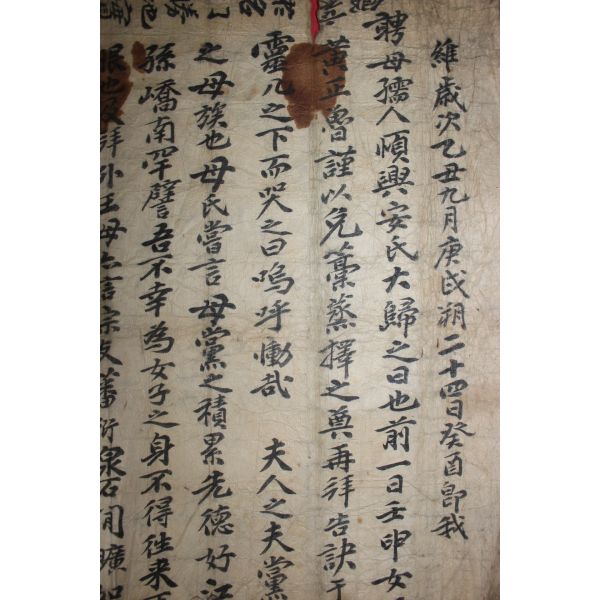 維歲次乙丑九月庚戌朔二十四日癸酉卽我
聘母孺人順興安氏大歸之日也前一日壬申女
黃正魯謹以兔藁蒸擇之奠再拜告訣于
靈几之下而哭之曰嗚呼慟哉 夫人之夫黨
之母族也母氏嘗言母黨之積累先德好江
孫嶠南罕譬吾不幸為女子之身不得往来
眼也及拜外王母言宗支蕃衍泉石間曠